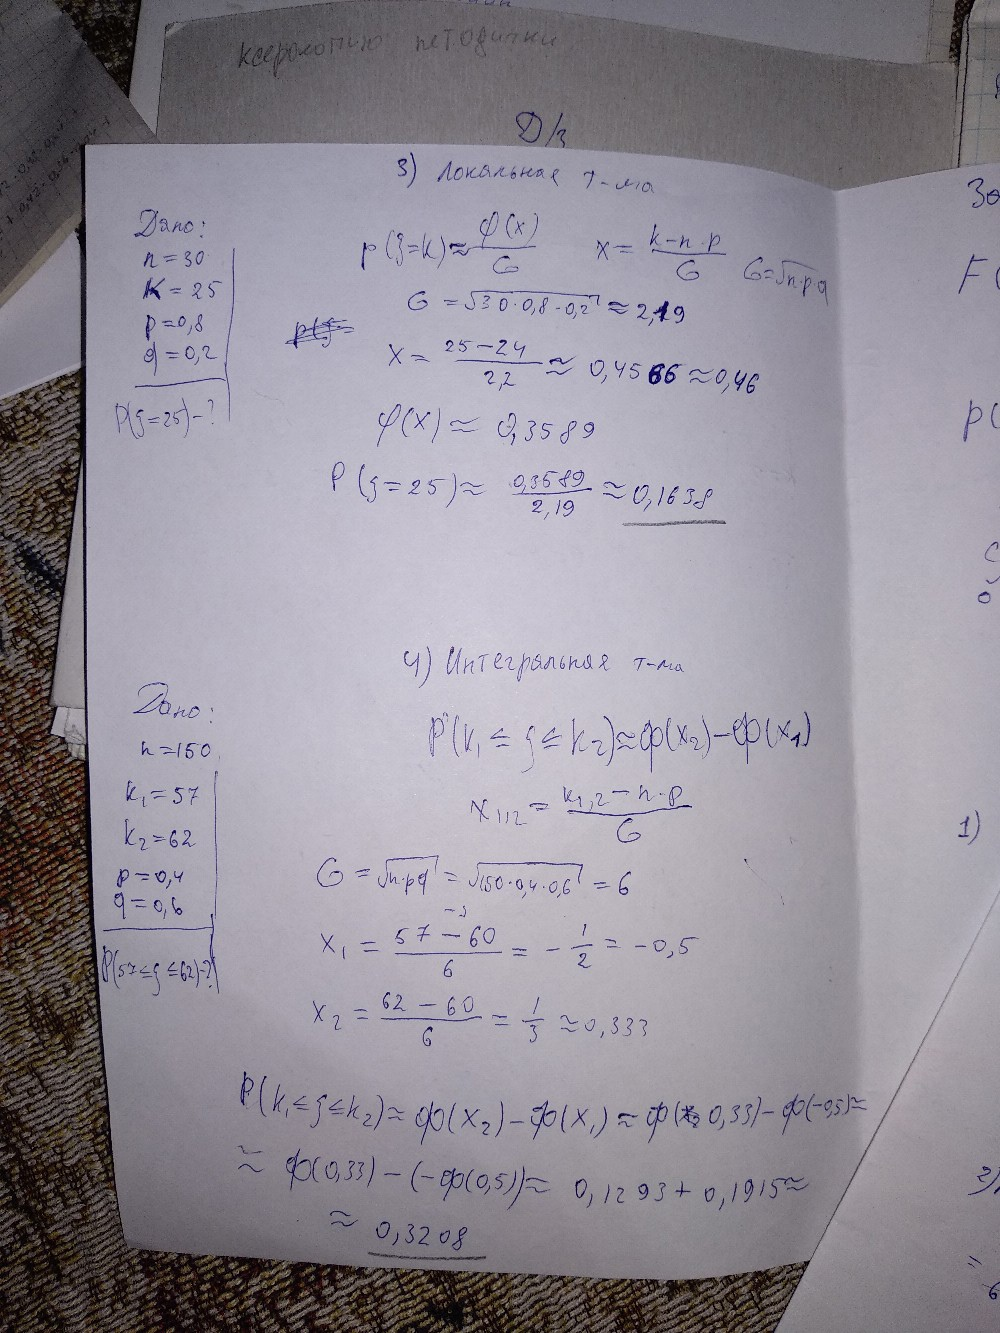 ксерокопию методички
Д/з
3) Локальная т-ма
Дано:
n=30
K=25
p=0,8
q=0,2
P(ξ=25)-?
p(ξ=k)≈φ(x)/б x=(k-n·p)/б б=√n·p·q
б=√30·0,8·0,2≈2,19
x=(25-24)/2,2≈0,4566≈0,46
φ(x)≈0,3589
P(ξ=25)≈0,3589/2,19≈0,1638
4) Интегральная т-ма
Дано:
n=150
k₁=57
k₂=62
p=0,4
q=0,6
P(57≤ξ≤62)-?
P(k₁≤ξ≤k₂)≈Ф(x₂)-Ф(x₁)
x₁,₂=(k₁,₂-n·p)/б
б=√n·pq=√150·0,4·0,6=6
x₁=(57-60)/6=-1/2=-0,5
x₂=(62-60)/6=1/3≈0,333
P(k₁≤ξ≤k₂)≈Ф(x₂)-Ф(x₁)≈Ф(0,33)-Ф(-0,5)≈
≈Ф(0,33)-(-Ф(0,5))≈0,1293+0,1915≈
≈0,3208
F(
p(
1)